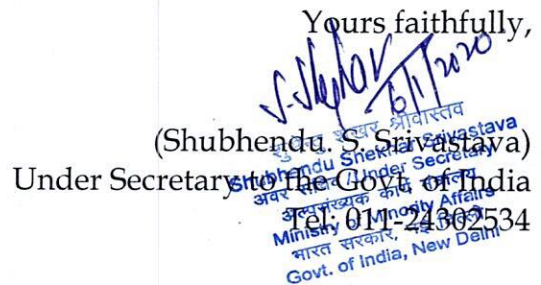 Yours faithfully,
S. Shekhar
6/1/2020
(Shubhendu. S. Srivastava)
Under Secretary to the Govt. of India
Tel: 011-24302534
शुभेन्दु शेखर श्रीवास्तव
Shubhendu Shekhar Srivastava
अवर सचिव/Under Secretary
अल्पसंख्यक कार्य मंत्रालय
Ministry of Minority Affairs
भारत सरकार, नई दिल्ली
Govt. of India, New Delhi